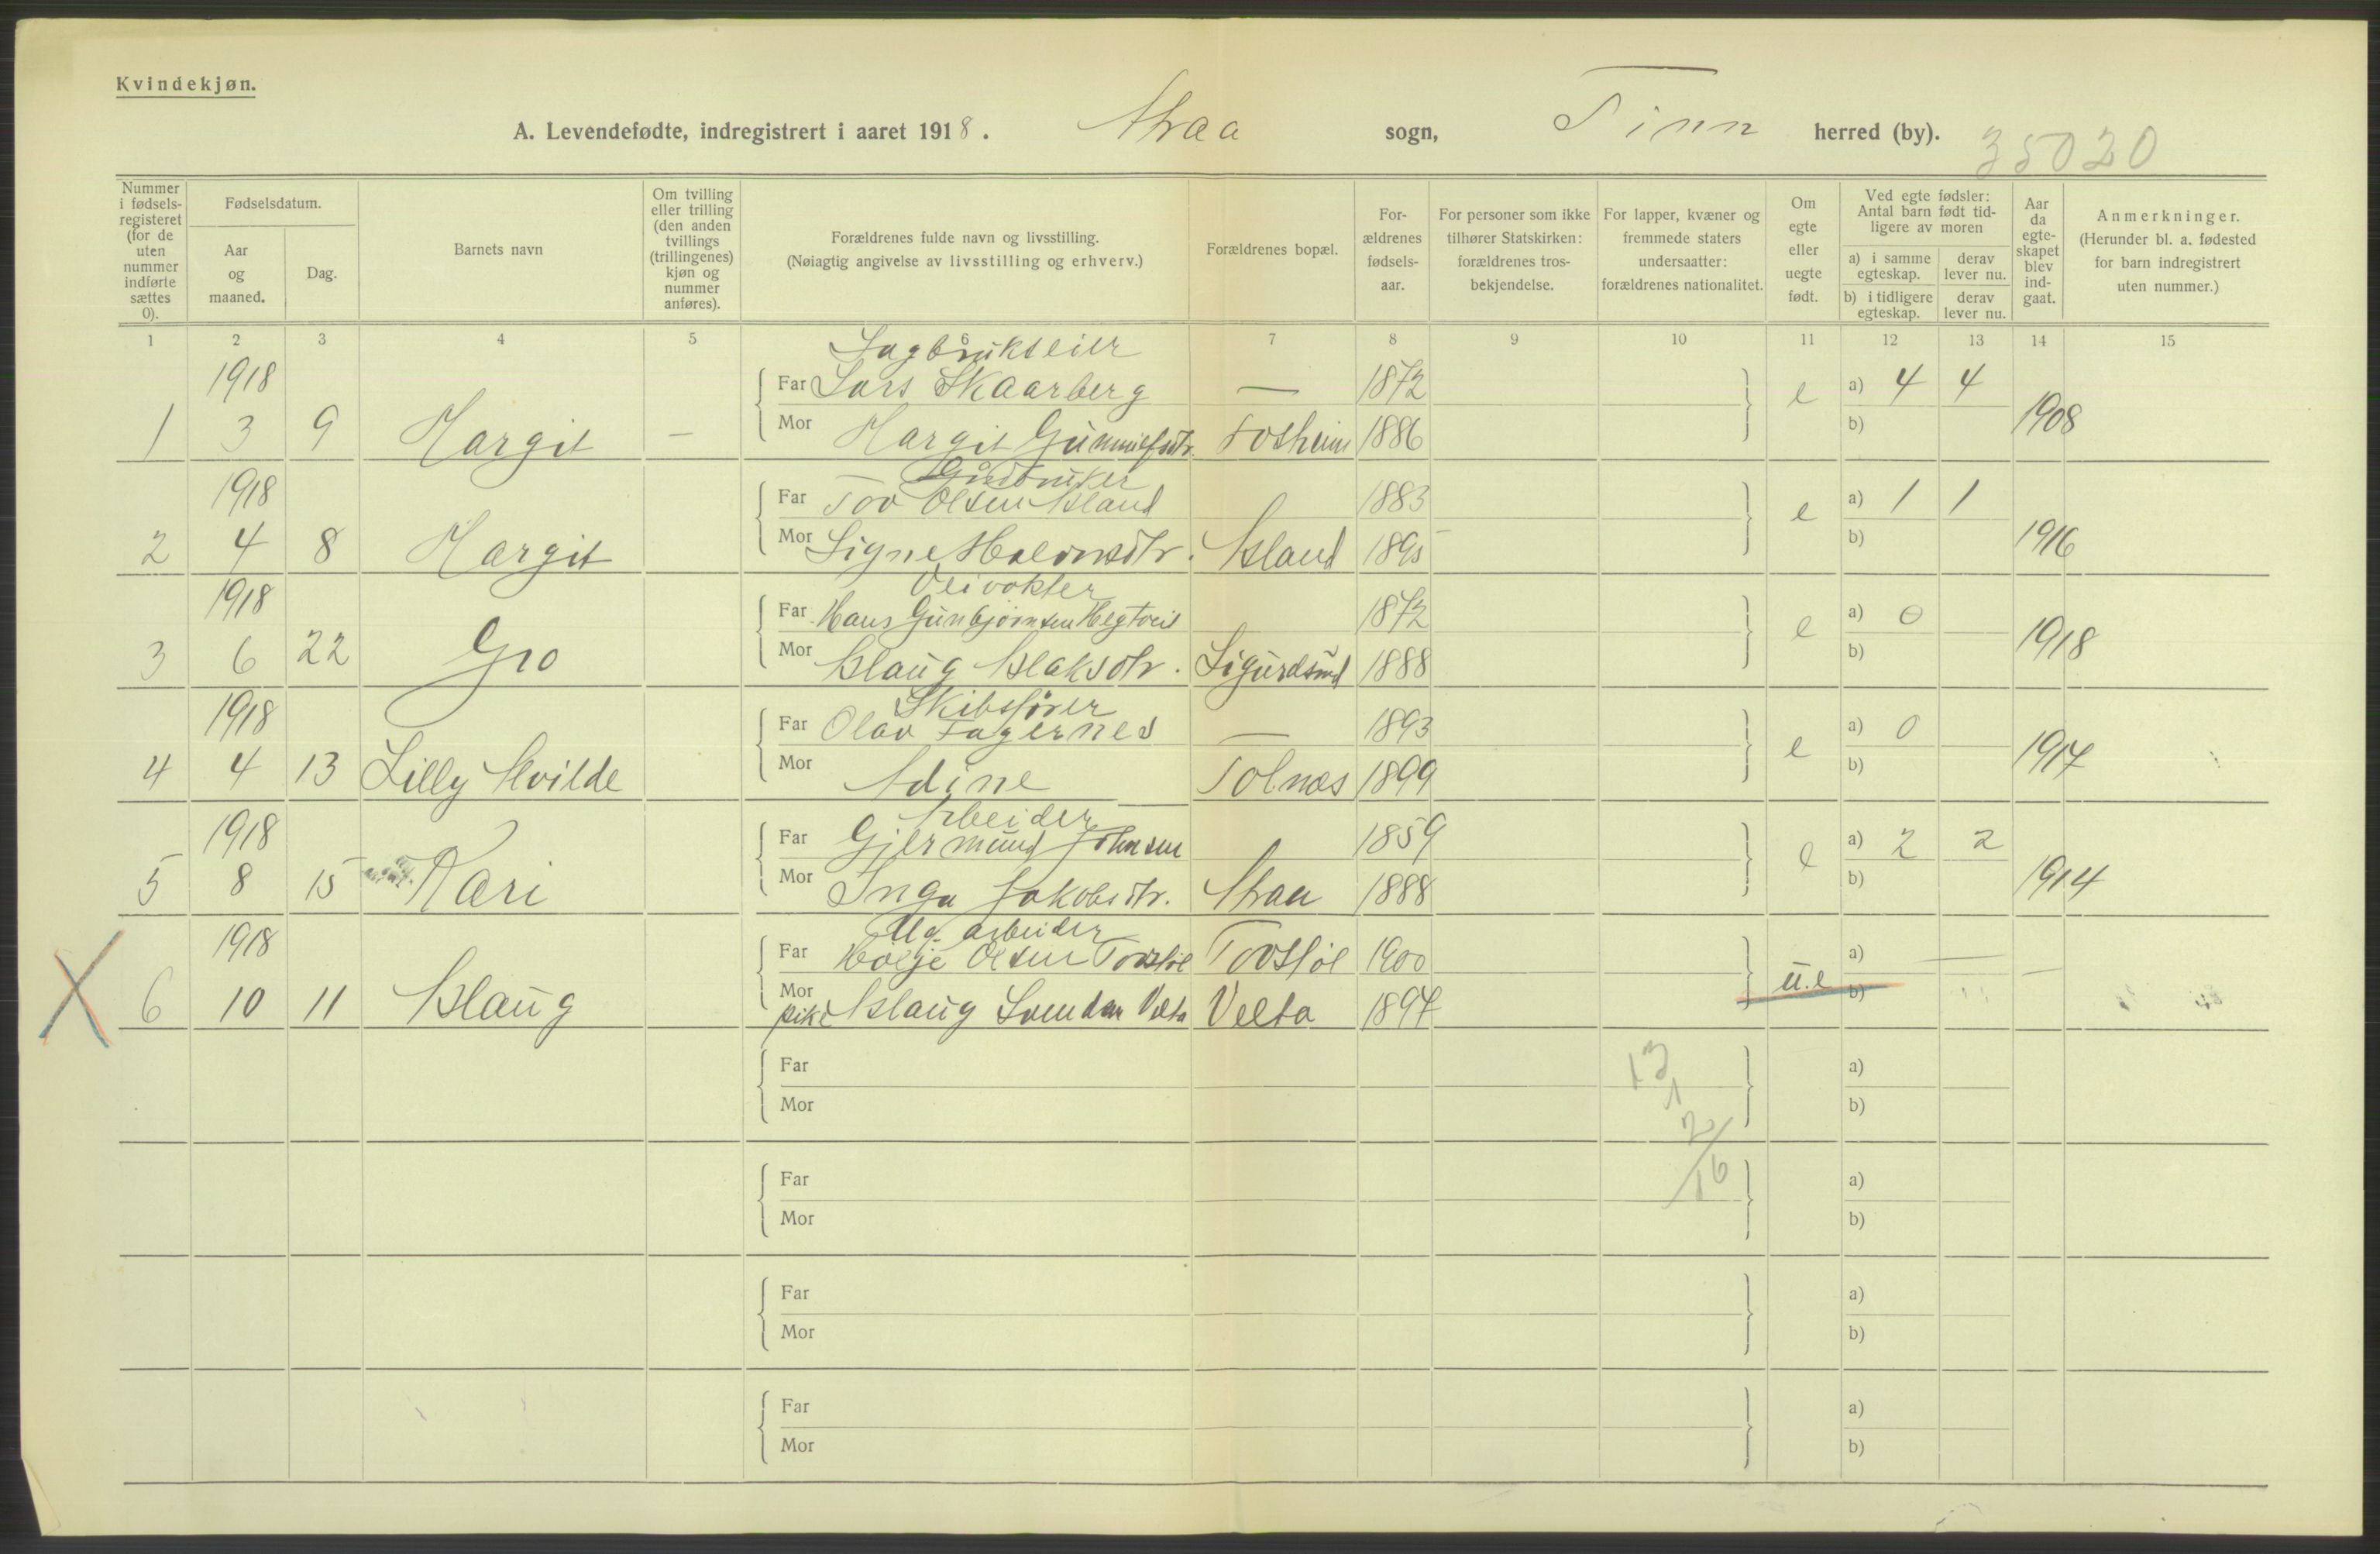 Kvindekjøn.
A. Levendefødte, indregistrert i aaret 1918. Atraa sogn, Tinn herred (by). 35020
Nummer i fødsels-registeret (for de uten nummer indførte sættes 0).
Fødselsdatum.
Aar og maaned.
Dag.
Barnets navn
Om tvilling eller trilling (den anden tvillings (trillingenes) kjøn og nummer anføres).
Forældrenes fulde navn og livsstilling.
(Nøiagtig angivelse av livsstilling og erhverv.)
Forældrenes bopæl.
For-ældrenes fødsels-aar.
For personer som ikke tilhører Statskirken: forældrenes tros-bekjendelse.
For lapper, kvæner og fremmede staters undersaatter: forældrenes nationalitet.
Om egte eller uegte født.
Ved egte fødsler: Antal barn født tid-ligere av moren
a) i samme egteskap.
derav lever nu.
b) i tidligere egteskap.
derav lever nu.
Aar da egte-skapet blev ind-gaat.
Anmerkninger.
(Herunder bl. a. fødested for barn indregistrert uten nummer.)
1 2 3 4 5 6 7 8 9 10 11 12 13 14 15
Sagbrukseier
1918 Far Lars Skaarberg — 1872 e a) 4 4
1 3 9 Margit — Mor Margit Gunnulfsdtr. Fosheim 1886 b) 1908
Gårdbruker
1918 Far Tov Olsen Åsland 1883 e a) 1 1
2 4 8 Margit Mor Signe Halvorsdtr. Åsland 1895 b) 1916
Veivokter
1918 Far Hans Gunbjørnsen 1872 e a) 0
3 6 22 Gro Mor Aslaug Aslaksdtr. Sigurdsrud 1888 b) 1918
Skibsfører
1918 Far Olav Fagernes — 1893 e a) 0
4 4 13 Lilly Alvilde Mor Adine Tolnæs 1899 b) 1917
Arbeider
1918 Far Gjermund Johnsen 1859 e a) 2 2
5 8 15 Kari Mor Inga Jakobsdtr. Atraa 1888 b) 1914
Ug. arbeider
1918 Far Olsen Tovsløl Tovsløl 1900 u.e a) —
6 10 11 Aslaug Mor pike Aslaug Velta Velta 1897 b)
Far a)
Mor b)
13
1
2/16
Far a)
Mor b)
Far a)
Mor b)
Far a)
Mor b)